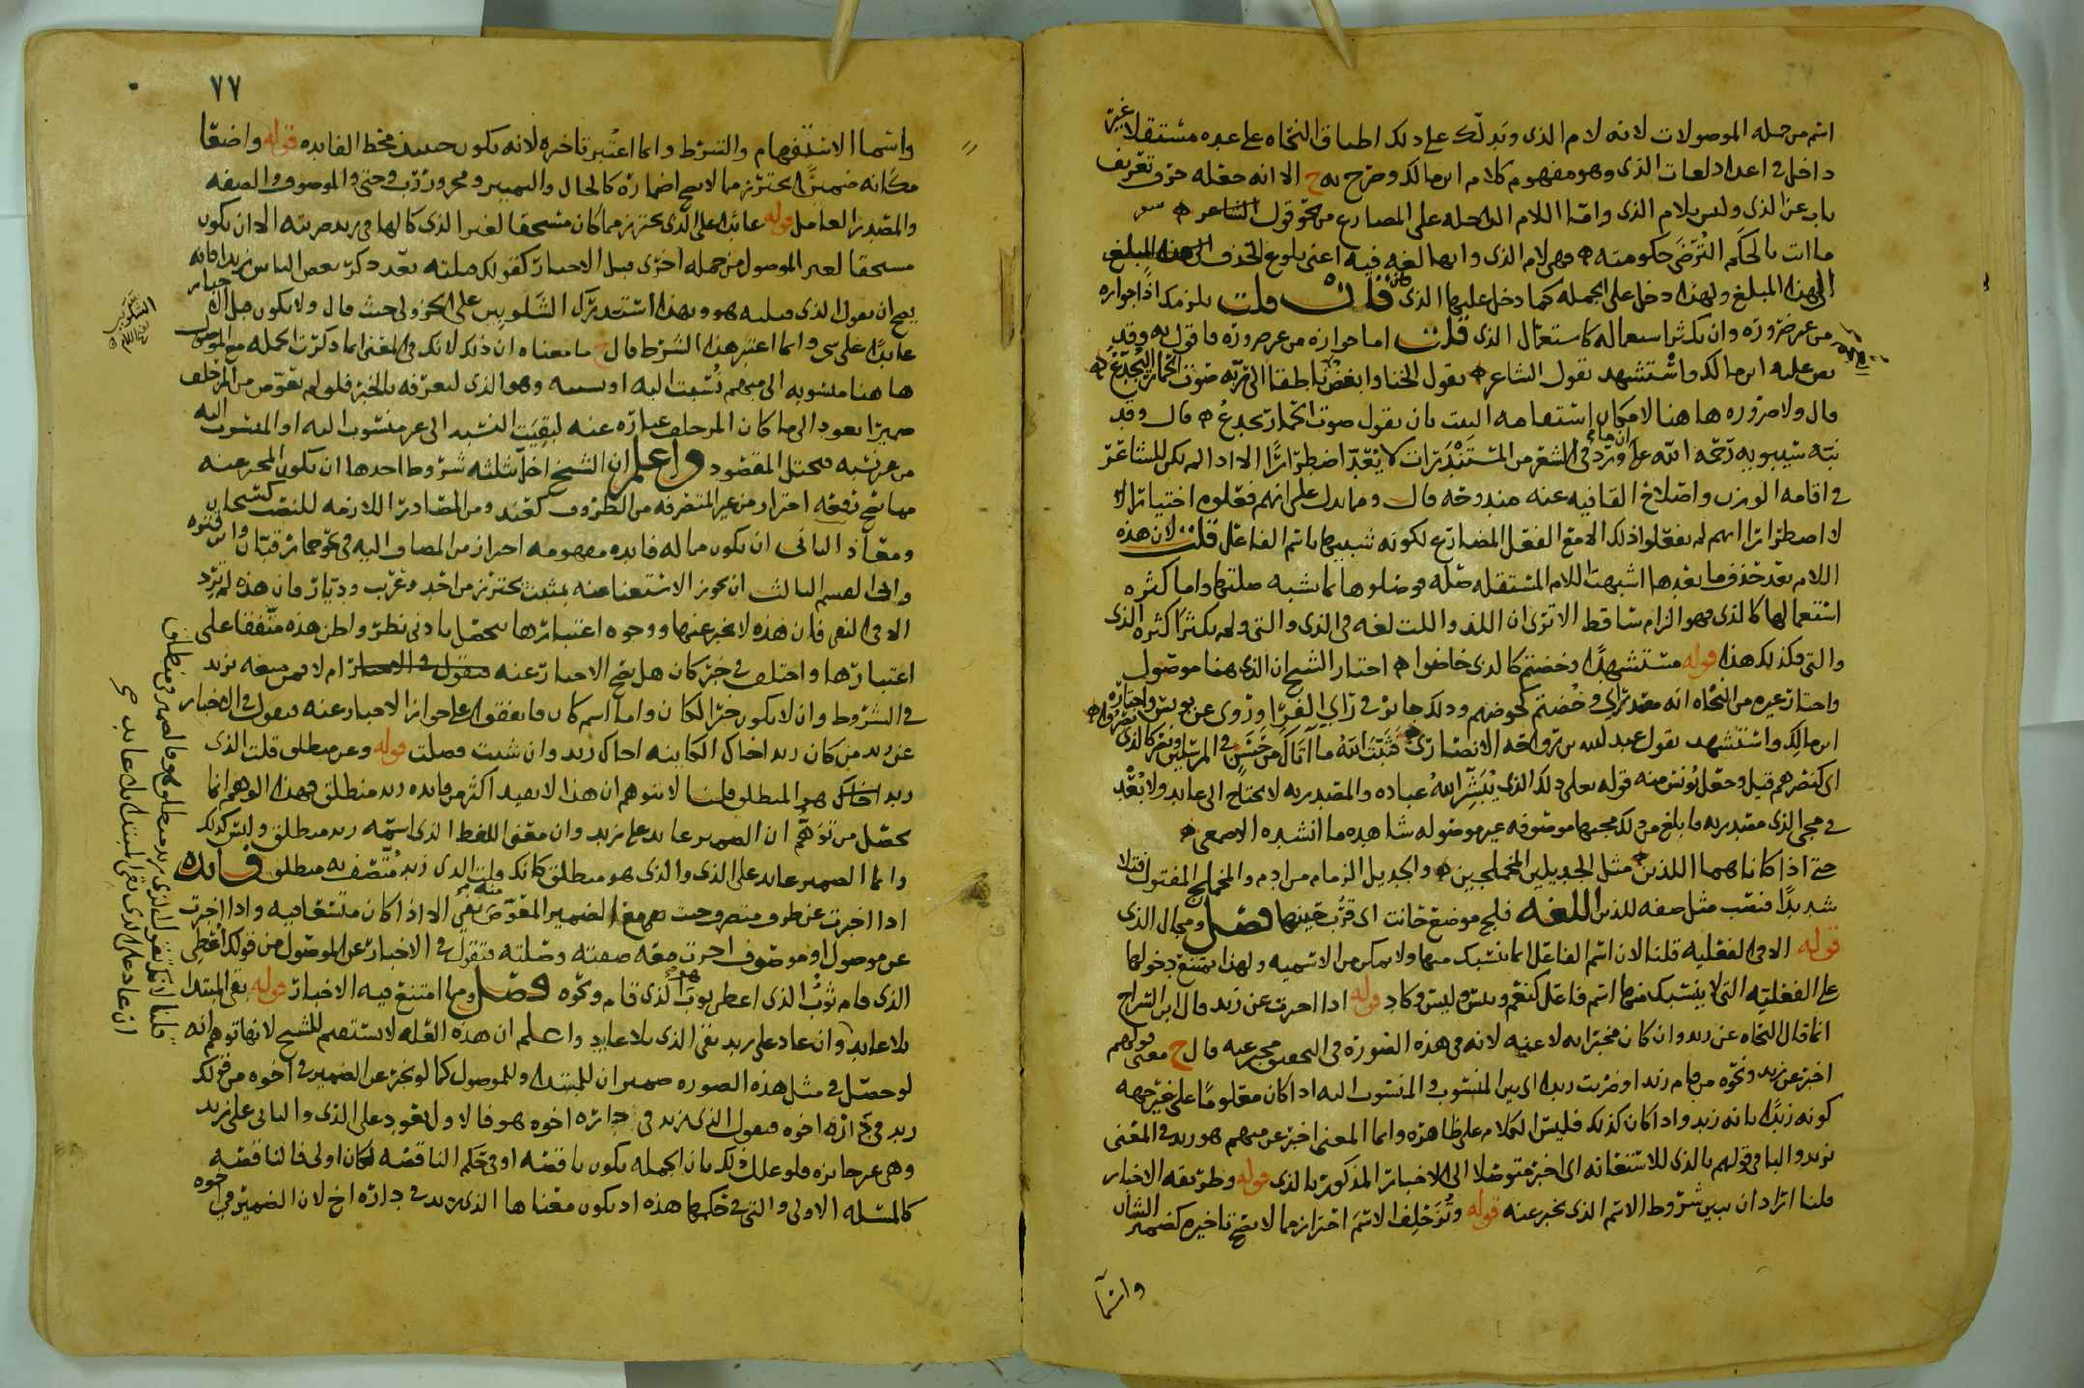 اسم من جمله الموصولات لانه لام الذى ويدلك على ذلك اطباق النحاه على عده مستقلا غير
داخل فى اعداد لغات الذى وهو مفهوم كلام ابن مالك وصرح به ح الا انه جعله حرف تعريف
باب عن الذى وليس بلام الذى واما اللام الداخله على المضارع من نحو قول الشاعر
ما انت بالحكم الترضى حكومته فهى لام الذى وانها لغه فيه اعنى بلوغ الحذف
الى هذا المبلغ ولهذا دخل على الجمله كما دخل عليها الذى فان قلت يلزمك اذا جوازه
من غير ضروره وان يكثر استعماله كاستعمال الذى قلت اما جوازه من غير ضروره فاقول به وقد
نص عليه ابن مالك واستشهد بقول الشاعر يقول الخنا وابغض العجم ناطقا الى ربه صوت الحمار اليجدع
قال ولا ضروره هاهنا لامكان استقامه البيت بان يقول صوت الحمار يجدع قال وقد
نبه سيبويه رحمه الله على ان ما ورد فى الشعر من المستندرات لا يعد اضطرارا الا اذا لم يكن للشاعر
فى اقامه الوزن واصلاح القافيه عنه مندوحه قال ومما يدل على انهم فعلوه اختيارا
لا اضطرارا انهم لم يفعلوا ذلك الا مع الفعل المضارع لكونه شبيها باسم الفاعل قلت لان هذه
اللام بعد حذف ما بعدها اشبهت اللام المستقله صله فوصلوها بما يشبه صلتها واما كثره
استعمالها كالذى فهو الزام ساقط الا ترى ان اللذ واللت لغه فى الذى والتى ولم يكثرا كثره الذى
والتى فكذلك هذا قوله مستشهدا وخضتم كالذى خاضوا اختار الشيخ ان الذى هنا موصول
واختار غيره من النحاه انه مصدرى اى وخضتم كخوضهم وذلك جائز فى راى الفرا وروى عن يونس واختاره
ابن مالك واستشهد بقول عبد الله بن رواحه الانصارى فثبت الله ما اتاك من حسن فى المرسلين ونصرا كالذى نصروا
اى كنصرهم قيل وجعل يونس منه قوله تعلى ذلك الذى يبشر الله عباده والمصدريه لا يحتاج الى عايد ولا بعد
فى مجى الذى مصدريه فابلغ من ذلك مجيها موصوفه غير موصوله شاهده ما انشده الاصمعى
حتى اذا كانا هما اللذين مثل الجديلين المحملجين والجديل الزمام من ادم والمحملج المفتول فتلا
شديدا فنصب مثل صفه للذين اللغه فلج موضع حانت اى قرب حينها فصل ومجال الذى
قوله الا فى الفعليه قلنا لان اسم الفاعل انما ينسبك منها ولا يمكن من الاسميه ولهذا يمتنع دخولها
على الفعليه التى لا ينسبك منها اسم فاعل كنعم وبئس وليس وكاد قوله اذا اخبرت عن زيد قال ابن السراج
انما قال النحاه عن زيد وان كان مخبرا به لا عنه لانه فى هذه الصوره فى التحقيق مخبر عنه قال ح معنى قولهم
اخبر عن زيد ونحوه من قام زيد او ضربت زيدا اى بين المنسوب والمنسوب اليه اذا كان معلوما على غير جهه
كونه زيدا بانه زيد واذا كان كذلك فليس الكلام على ظاهره وانما المعنى اخبر عن مبهم هو زيد فى المعنى
بزيد والبا فى قولهم بالذى للاستعانه اى اخبر متوصلا الى الاخبار المذكور بالذى قوله وطريقه الاخبار
قلنا اراد ان يبين شروط الاسم الذى يخبر عنه قوله وتزحلف الاسم احترازا مما لا يصح تاخيره كضمير الشان
واسما
٧٧
واسما الاستفهام والشرط وانما اعتبر تاخره لانه يكون حينئذ محط الفايده قوله واضعا
مكانه ضميرا يحترز مما لا يصح اضماره كالحال والتمييز ومجرور رب وحتى والموصوف والصفه
والمصدر العامل قوله عائدا على الذى يحترز مما كان مستحقا لغير الذى كالها فى زيد ضربته الا ان يكون
مستحقا لغير الموصول من جمله اخرى قبل الاخبار كقولك صلته بعد ذكر بعض الناس زيدا فانه
يصح ان يقول الذى صلته هو وبهذا استدرك الشلوبين على الجزولى حيث قال ولا يكون قبل الاخبار
عايدا على شى وانما اعتبر هذا الشرط قال ح ما معناه ان ذلك لانك فى المعنى انما ذكرت الجمله مع الموصول
هاهنا منسوبه الى مبهم نسبت اليه او سببه وهو الذى لتعرفه بالخبر فلو لم تعوض من المزحلف
ضميرا يعود الى ما كان المزحلف عباره عنه لبقيت النسبه الى غير منسوب اليه او المنسوب اليه
من غير نسبه فيختل المقصود واعلم ان الشيخ اخل بثلثه شروط احدها ان يكون المخبر عنه
مما يصح رفعه احترازا من غير المتصرفه من الظروف كعند ومن المصادر اللازمه للنصب كسبحان
ومعاذ الثانى ان يكون مما له فايده مفهومه احترازا من المضاف اليه فى نحو حمار قبان وابن قتره
وانى القسم الثالث ان يجوز الاستغنا عنه بمثبت يحترز من احد وعريب وديار فان هذه لم ترد
الا فى النفى فان هذه لا يخبر عنها ووجوه اعتبارها يحصل بادنى نظر واظن هذه متفقا على
اعتبارها واختلف فى خبر كان هل يصح الاخبار عنه ام لا فمن منعه يزيد
فى الشروط وان لا يكون خبرا لكان واما اسم كان فاتفقوا على جواز الاخبار عنه فيقول فى الاخبار
عن زيد من كان زيد اخاك الكاينه اخاك زيد وان شيت فصلت قوله وعن منطلق قلت الذى
زيد هو المنطلق قلنا لا يتوهم ان هذا لا يفيد اكثر من فايده زيد منطلق فهذا الوهم انما
يحصل من توهم ان الضمير عايد على زيد وان معنى اللفظ الذى اسمه زيد منطلق وليس كذلك
وانما الضمير عايد على الذى والذى هو منطلق كانك قلت الذى زيد متصف به منطلق فايده
اذا اخبرت عن ظرف متصرف جيت مع الضمير المعوض منه بفى الا اذا كان متسعا فيه واذا اخبرت
عن موصول او موصوف اخبرت معه صفته وصلته فتقول فى الاخبار عن الموصول من قولك اعطى
الذى قام ثوب الذى اعطى ثوبا هو الذى قام ونحوه فصل ومما امتنع فيه الاخبار قوله بقى المبتدا
بلا عايد وان عاد على زيد بقى الذى بلا عايد واعلم ان هذه العله لا تستقيم للشيخ لانها توهم انه
لو حصل فى مثل هذه الصوره ضميران للمبتدا وللموصول كما لو يخبر عن الضمير فى اخوه من قولك
زيد فى داره اخوه فيقول الذى زيد فى داره اخوه هو فالاول يعود على الذى والثانى على زيد
وهى غير جايزه فلو علل ذلك بان الجمله يكون ناقصه او فى حكم الناقصه لكان اولى فالناقصه
كالمسئله الاولى والتى فى حكمها هذه اذ يكون معناها الذى زيد فى داره اخ لان الضمير فى اخوه